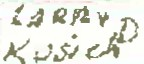 LARRY D
Kusick